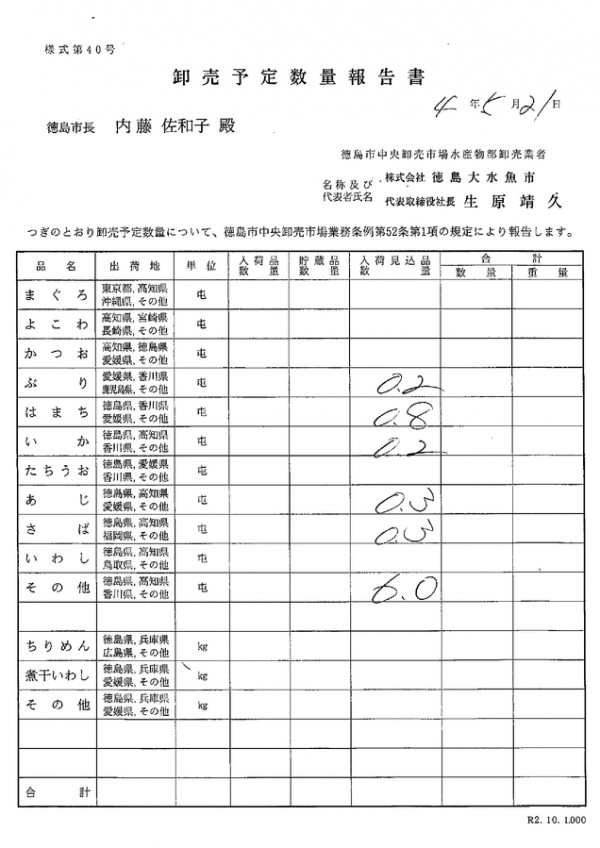 様式第40号
卸売予定数量報告書
4年5月21日
徳島市長 内藤 佐和子 殿
徳島市中央卸売市場水産物部卸売業者
名称及び 株式会社 徳島大水魚市
代表者氏名 代表取締役社長 生原靖久
つぎのとおり卸売予定数量について、徳島市中央卸売市場業務条例第52条第1項の規定により報告します。
品名 出荷地 単位 入荷品数量 貯蔵品数量 入荷見込品数量 合計
数量 重量
まぐろ 東京都, 高知県 沖縄県, その他 屯
よこわ 高知県, 宮崎県 長崎県, その他 屯
かつお 高知県, 徳島県 愛媛県, その他 屯
ぶり 愛媛県, 香川県 鹿児島県, その他 屯 0.2
はまち 徳島県, 香川県 愛媛県, その他 屯 0.8
いか 徳島県, 高知県 香川県, その他 屯 0.2
たちうお 徳島県, 愛媛県 香川県, その他 屯
あじ 徳島県, 高知県 愛媛県, その他 屯 0.3
さば 徳島県, 高知県 福岡県, その他 屯 0.3
いわし 徳島県, 高知県 鳥取県, その他 屯
その他 徳島県, 高知県 香川県, その他 屯 6.0
ちりめん 徳島県, 兵庫県 広島県, その他 kg
煮干いわし 徳島県, 兵庫県 愛媛県, その他 kg
その他 徳島県, 兵庫県 愛媛県, その他 kg
合計
R2. 10. 1,000